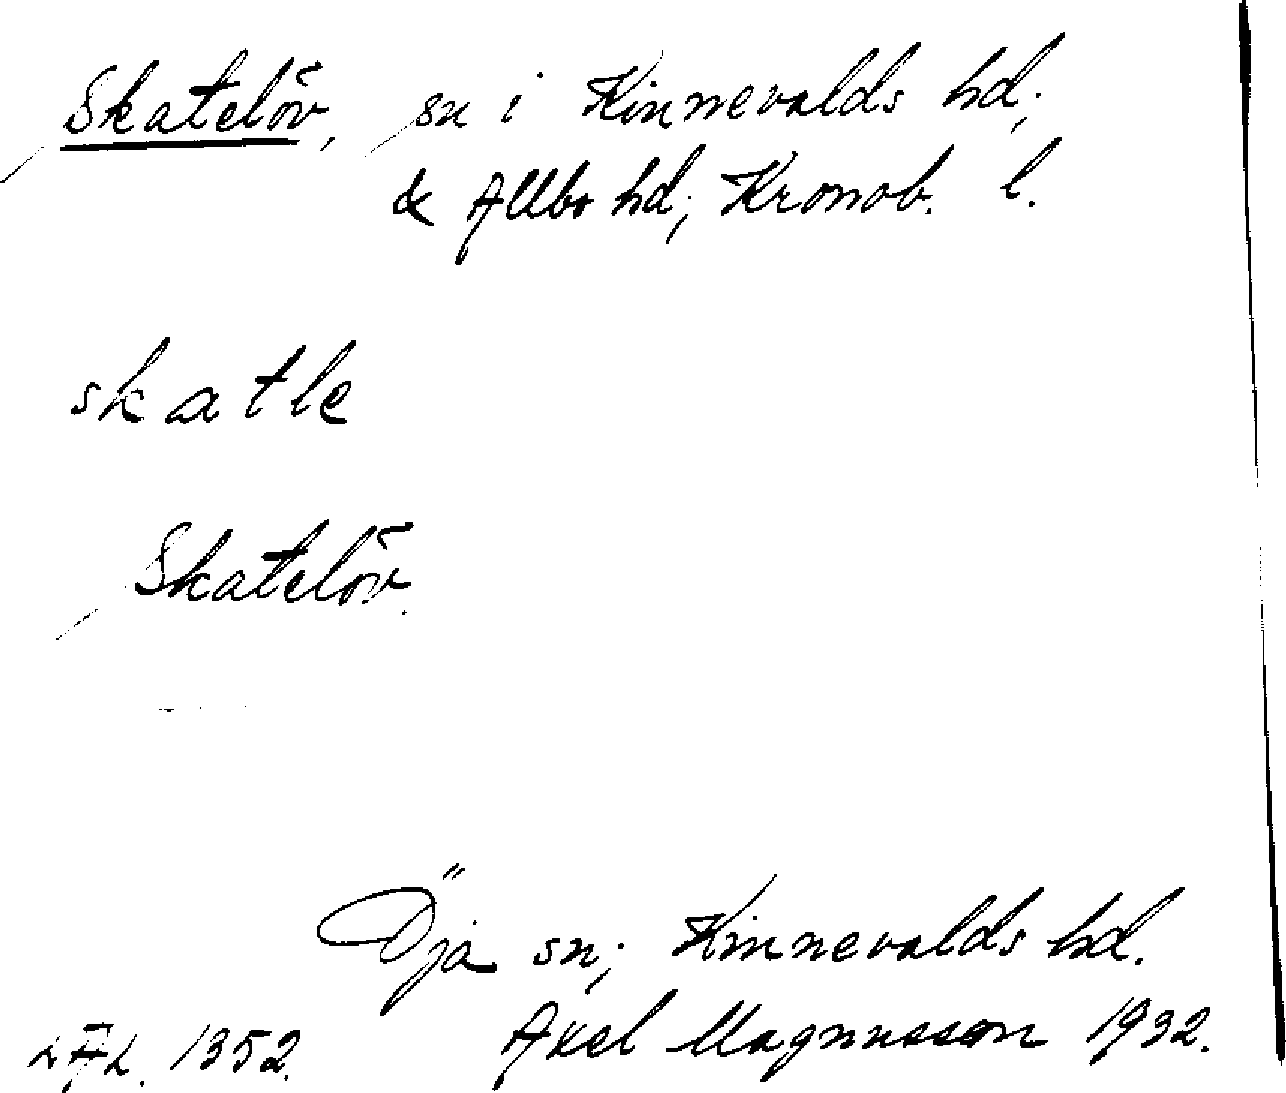 Skatelöv, sn i Kinnevalds hd;
& Allbo hd; Kronob. l.
skatle
Skatelöv.
Öja sn; Kinnevalds hd.
Axel Magnusson 1932.
LAL. 1352.